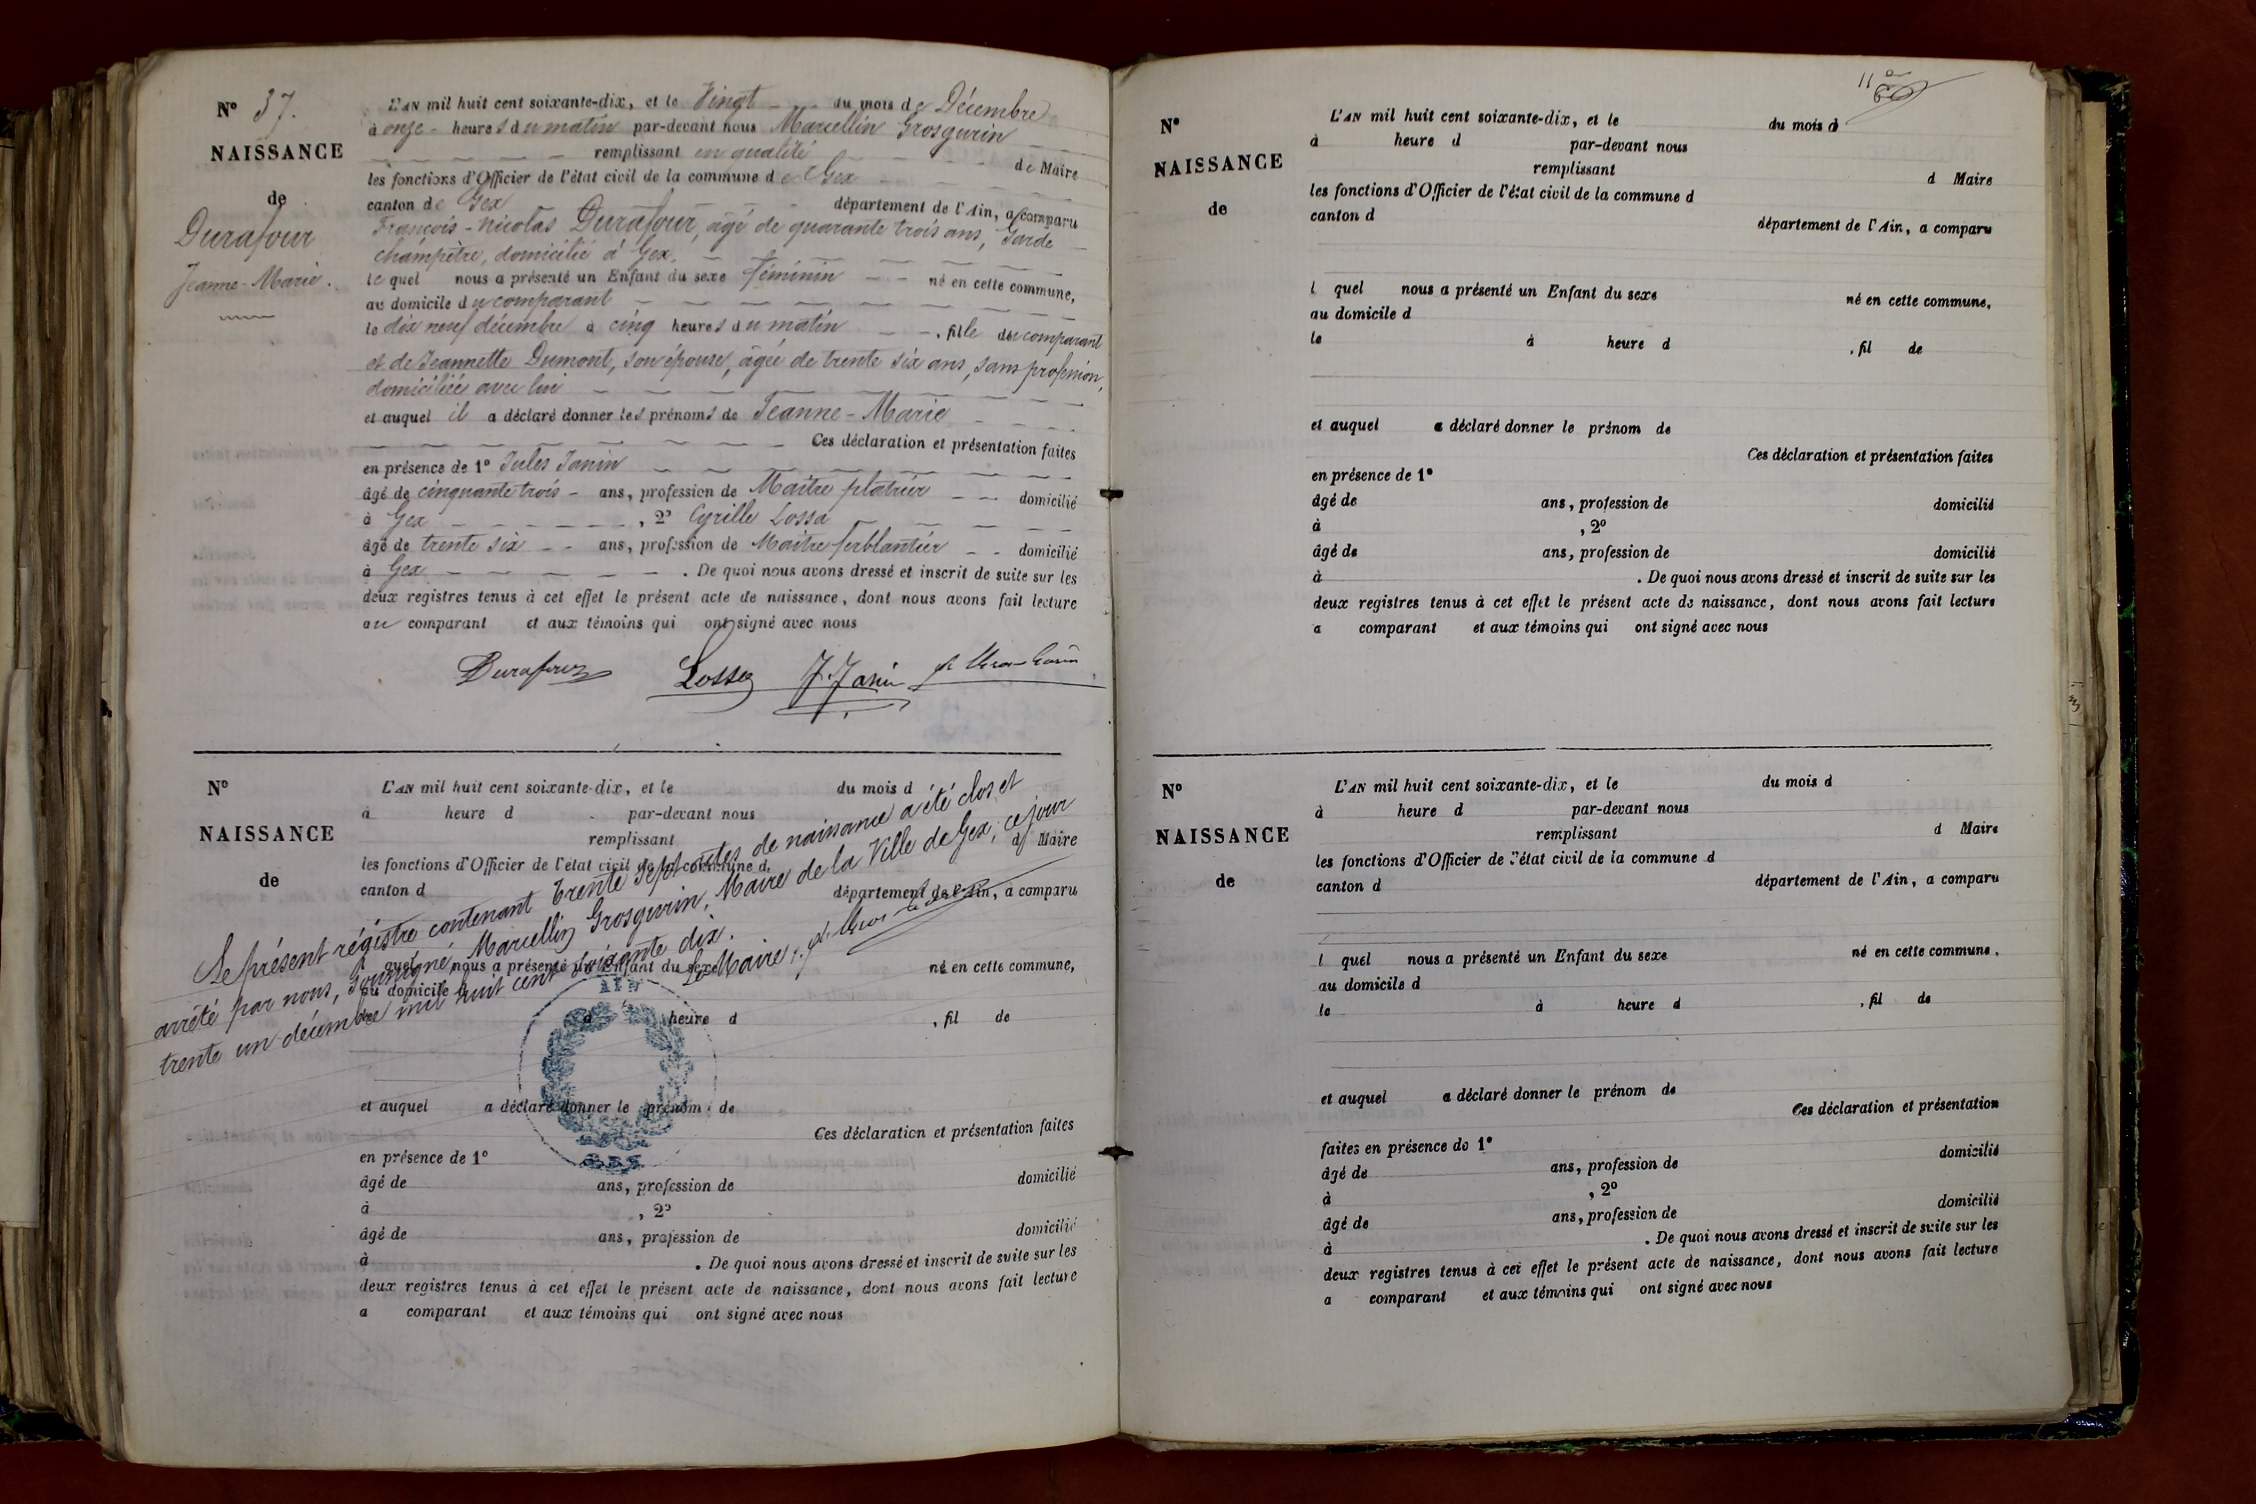 N° 37.
NAISSANCE
de
Durafour
Jeanne-Marie.
L'AN mil huit cent soixante-dix, et le Vingt du mois de Décembre
à onze heures du matin par-devant nous Marcellin Grosgurin
remplissant en qualité de Maire
les fonctions d'Officier de l'état civil de la commune de Gex
canton de Gex département de l'Ain, a comparu
François-Nicolas Durafour, âgé de quarante trois ans, Garde
champêtre, domicilié à Gex,
lequel nous a présenté un Enfant du sexe féminin né en cette commune,
au domicile du comparant
le dix neuf décembre à cinq heures du matin, fille du comparant
et de Jeannette Dumont, son épouse, âgée de trente six ans, sans profession,
domiciliée avec lui
et auquel il a déclaré donner les prénoms de Jeanne-Marie
Ces déclaration et présentation faites
en présence de 1° Jules Janin
âgé de cinquante trois ans, profession de Maître plâtrier domicilié
à Gex, 2° Cyrille Lossa
âgé de trente six ans, profession de Maître ferblantier domicilié
à Gex. De quoi nous avons dressé et inscrit de suite sur les
deux registres tenus à cet effet le présent acte de naissance, dont nous avons fait lecture
au comparant et aux témoins qui ont signé avec nous
Durafour Lossa J. Janin
N°
NAISSANCE
de
L'AN mil huit cent soixante-dix, et le du mois d
à heure d par-devant nous
remplissant d Maire
les fonctions d'Officier de l'état civil de la commune d
canton d département de l'Ain, a comparu
Le présent régistre contenant trente sept actes de naissance a été clos et
arrêté par nous, soussigné, Marcellin Grosgurin, Maire de la Ville de Gex, ce jour
trente un décembre mil huit cent soixante dix.
Le Maire:
l quel nous a présenté un Enfant du sexe né en cette commune,
au domicile d
à heure d , fil de
AIN
GEX
et auquel a déclaré donner le prénom de
Ces déclaration et présentation faites
en présence de 1°
âgé de ans, profession de domicilié
à , 2°
âgé de ans, profession de domicilié
à . De quoi nous avons dressé et inscrit de suite sur les
deux registres tenus à cet effet le présent acte de naissance, dont nous avons fait lecture
a comparant et aux témoins qui ont signé avec nous
N°
NAISSANCE
de
L'AN mil huit cent soixante-dix, et le du mois d
à heure d par-devant nous
remplissant d Maire
les fonctions d'Officier de l'état civil de la commune d
canton d département de l'Ain, a comparu
l quel nous a présenté un Enfant du sexe né en cette commune,
au domicile d
le à heure d , fil de
et auquel a déclaré donner le prénom de
Ces déclaration et présentation faites
en présence de 1°
âgé de ans, profession de domicilié
à , 2°
âgé de ans, profession de domicilié
à . De quoi nous avons dressé et inscrit de suite sur les
deux registres tenus à cet effet le présent acte de naissance, dont nous avons fait lecture
a comparant et aux témoins qui ont signé avec nous
N°
NAISSANCE
de
L'AN mil huit cent soixante-dix, et le du mois d
à heure d par-devant nous
remplissant d Maire
les fonctions d'Officier de l'état civil de la commune d
canton d département de l'Ain, a comparu
l quel nous a présenté un Enfant du sexe né en cette commune,
au domicile d
le à heure d , fil de
et auquel a déclaré donner le prénom de
Ces déclaration et présentation
faites en présence de 1°
âgé de ans, profession de domicilié
à , 2°
âgé de ans, profession de domicilié
à . De quoi nous avons dressé et inscrit de suite sur les
deux registres tenus à cet effet le présent acte de naissance, dont nous avons fait lecture
a comparant et aux témoins qui ont signé avec nous